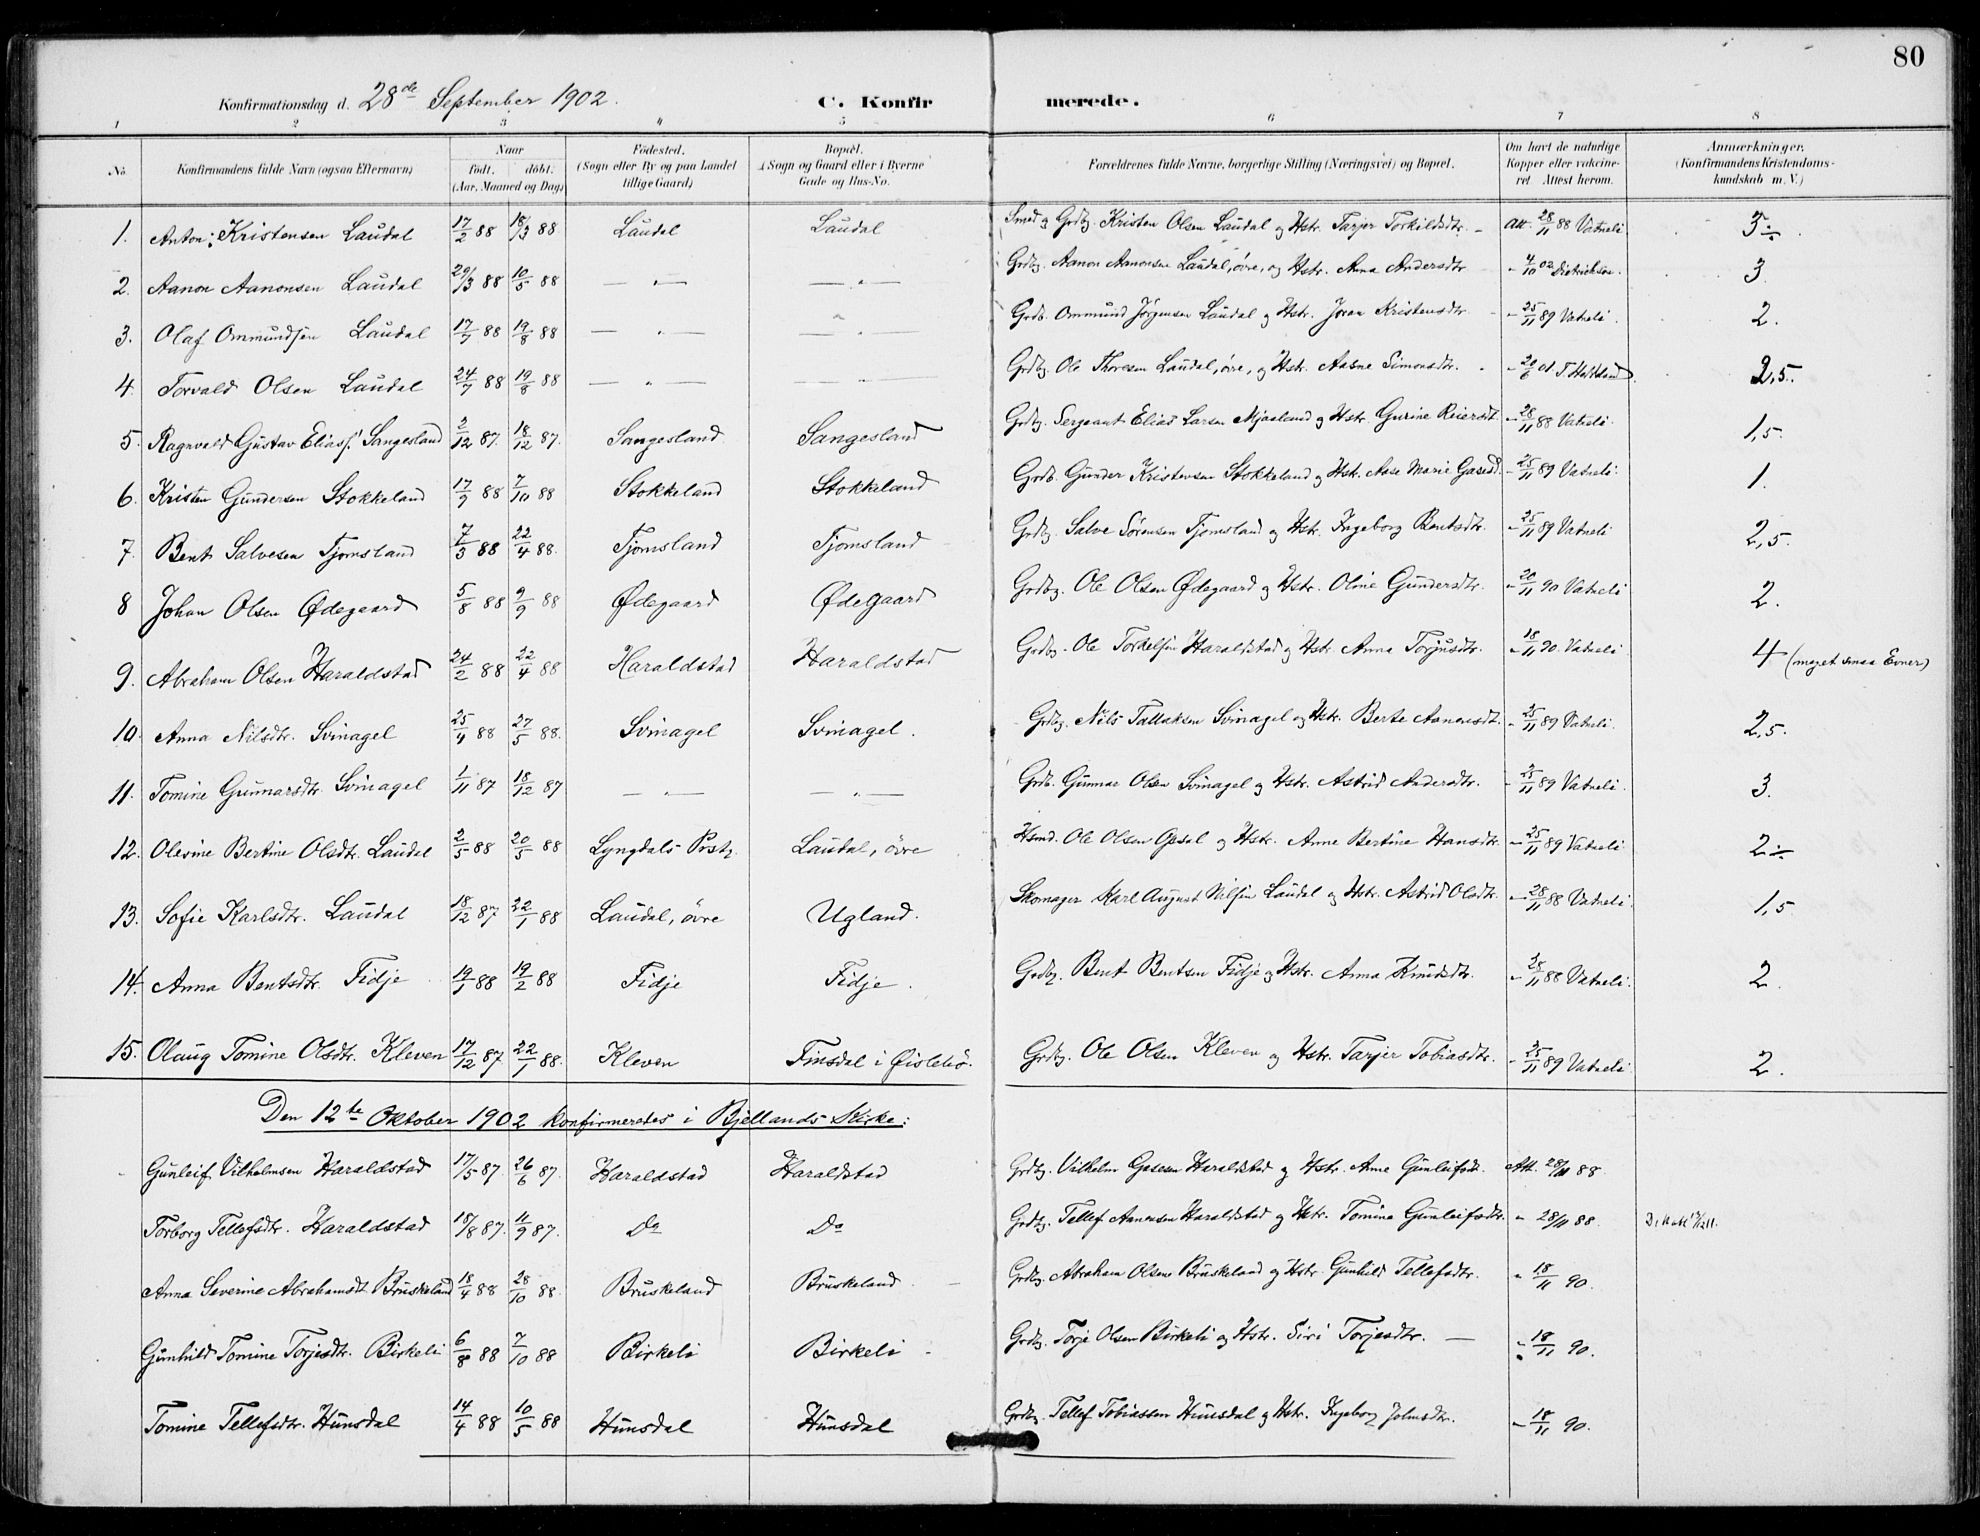 80
Konfirmationsdag d. 28de September 1902. C. Konfirmerede.
1 2 3 4 5 6 7 8
No Konfirmandens fulde Navn (ogsaa Efternavn) Naar födt. döbt. (Aar, Maaned og Dag) Födested. (Sogn eller By og paa Landet tillige Gaard) Bopæl. (Sogn og Gaard eller i Byerne Gade og Hus-No. Forældrenes fulde Navne, borgerlige Stilling (Næringsvei) og Bopæl. Om havt de naturlige Kopper eller vakcineret Attest herom. Anmærkninger. (Konfirmandens Kristendomskundskab m. V.)
1. Anton Kristensen Laudal 17/2 88 18/3 88 Laudal Laudal Smed og Grdbg. Kristen Olsen Laudal og Hstr. Tarjer Torkildsdtr. Att. 28/11 88 Vatneli 3÷.
2. Aanon Aanonsen Laudal 29/3 88 10/5 88 — " — — " — Grdbg. Aanon Aanonsen Laudal, övre, og Hstr. Anna Andersdtr. " 4/10 02 Didrikson. 3.
3. Olaf Ommundsen Laudal 17/7 88 19/8 88 — " — — " — Grdb. Ommund Jørgensen Laudal og Hstr. Joran Kristensdtr. " 25/11 89 Vatneli. 2.
4. Torvald Olsen Laudal 24/7 88 19/8 88 — " — — " — Grdbg. Ole Thoresen Laudal, övre, og Hstr. Aasne Simonsdtr. " 20/6 01 2,5.
5. Ragnvald Gustav Eliass. Sangesland 2/12 87. 18/12 87. Sangesland Sangesland Grdbg. Sergeant Elias Larsen Mjaaland og Hstr. Gurine Reiersdt. " 28/11 88 Vatneli. 1,5.
6. Kristen Gundersen Stokkeland 17/9 88 7/10 88 Stokkeland Stokkeland Grdb. Gunder Kristensen Stokkeland og Hstr. Aase Marie Gasesd. " 25/11 89 Vatneli. 1.
7. Bent Salvesen Tjomsland 7/3 88 22/4 88. Tjomsland Tjomsland Grdbg. Salve Sørensen Tjomsland og Hstr. Ingeborg Bentsdtr. " 25/11 89 Vatneli 2,5.
8 Johan Olsen Ødegaard 5/8 88 9/9 88 Ødegaard Ødegaard Grdbg. Ole Olsen Ødegaard og Hstr. Oline Gundersdtr. " 20/11 90 Vatneli 2.
9. Abraham Olsen Haraldstad 24/2 88 22/4 88 Haraldstad Haraldstad Grdbg. Ole Haraldstad og Hstr. Anna Torjusdtr. " 18/11 90. Vatneli 4 (meget smaa Evner)
10. Anna Nilsdtr. Svinagel 25/4 88 27/5 88. Svinagel Svinagel. Grdbg. Nils Tallaksen Svinagel og Hstr. Berte Aanensdt. " 25/11 89 Vatneli. 2,5.
11. Tomine Gunnarsdtr. Svinagel 1/11 87 18/12 87 — " — — " — Grdb. Gunnar Olsen Svinagel og Hstr. Astrid Andersdtr. " 25/11 89 Vatneli. 3.
12. Olevine Bertine Olsdtr. Laudal 2/5 88 20/5 88 Lyngdals Prstg. Laudal, övre Hsmd. Ole Olsen Opsal og Hstr. Anne Bertine Hansdtr. " 25/11 89 Vatneli 2÷
13. Sofie Karlsdtr. Laudal 18/12 87 22/1 88 Laudal, övre Ugland. Skomager Karl August Nilsen Laudal og Hstr. Astrid Olsdtr. " 28/11 88 Vatneli. 1,5
14. Anna Bentsdtr. Fidje 19/1 88 19/2 88 Fidje Fidje. Grdbg. Bent Bentsen Fidje og Hstr. Anna Knudsdtr. " 28/11 88 Vatneli. 2.
15. Olaug Tomine Olsdtr. Kleven 17/12 87. 22/1 88. Kleven Finsdal i Øislebö. Grdbg. Ole Olsen Kleven og Hstr. Tarjer Tobiasdtr. " 25/11 89 Vatneli 2.
Den 12te Oktober 1902 konfirmeredes i Bjellands Kirke:
Gunleif Vilhelmsen Haraldstad 17/5 87. 26/6 87. Haraldstad Haraldstad Grdbg. Vilhelm Gasesen Haraldstad og Hstr. Anne Gunleifsdt. Att. 28/11 88.
Torborg Tellefsdtr. Haraldstad 18/8 87. 11/9 87. Do Do Grdbg. Tellef Aanensen Haraldstad og Hstr. Tomine Gunleifsdtr. " 28/11 88.
Anna Severine Abrahamsdt. Bruskeland 18/4 88 28/10 88. Bruskeland Bruskeland Grdbg. Abraham Olsen Bruskeland og Hstr. Gunhild Tellefsdtr. " 18/11 90.
Gunhild Tomine Torjesdtr. Birkeli 6/8 88 7/10 88 Birkeli Birkeli Grdbg. Torje Olsen Birkeli og Hstr. Siri Torjesdtr. — " 18/11 90.
Tomine Tellefsdtr. Hunsdal 14/4 88 10/5 88 Hunsdal Hunsdal Grdbg. Tellef Tobiassen Hunsdal og Hstr. Ingeborg Johnsdtr. " 18/11 90.